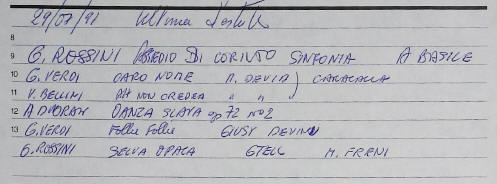 29/07/91 Ultima
8
9 G. ROSSINI ASSEDIO DI CORINTO SINFONIA A BASILE
10 G. VERDI CARO NOME M. DEVIA ) CARACALLA
11 V. BELLINI AH NON CREDEA " "
12 A DVORAK DANZA SLAVA op 72 No2
13 G. VERDI Follie Follie GIUSY DEVINU
G. ROSSINI SELVA OPACA GTELL M. FRENI